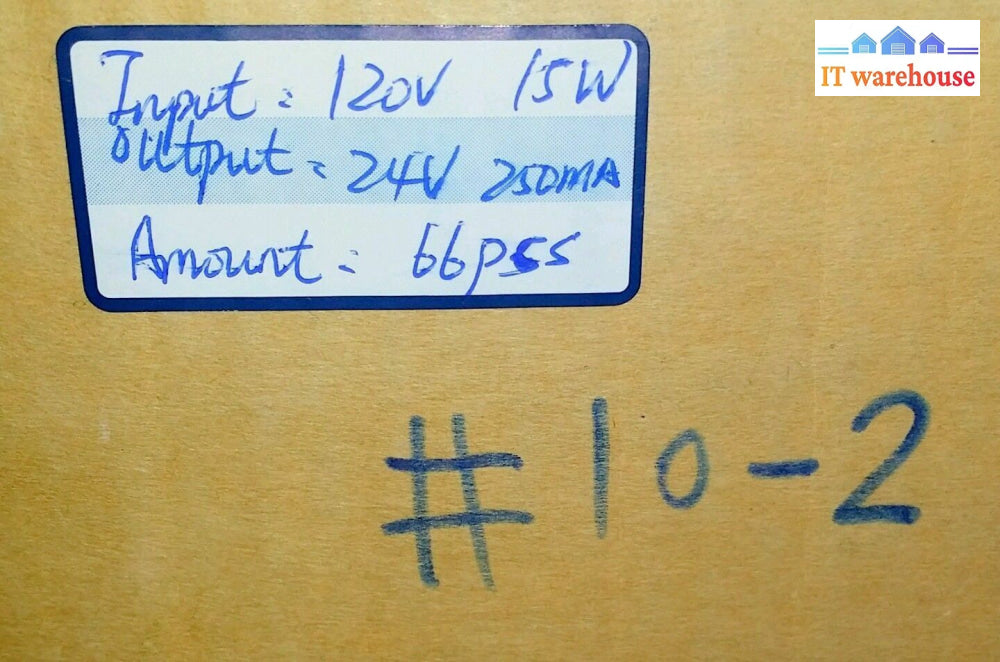 Input: 120V 15W
Output: 24V 250mA
Amount: 66pss
#10-2
IT warehouse